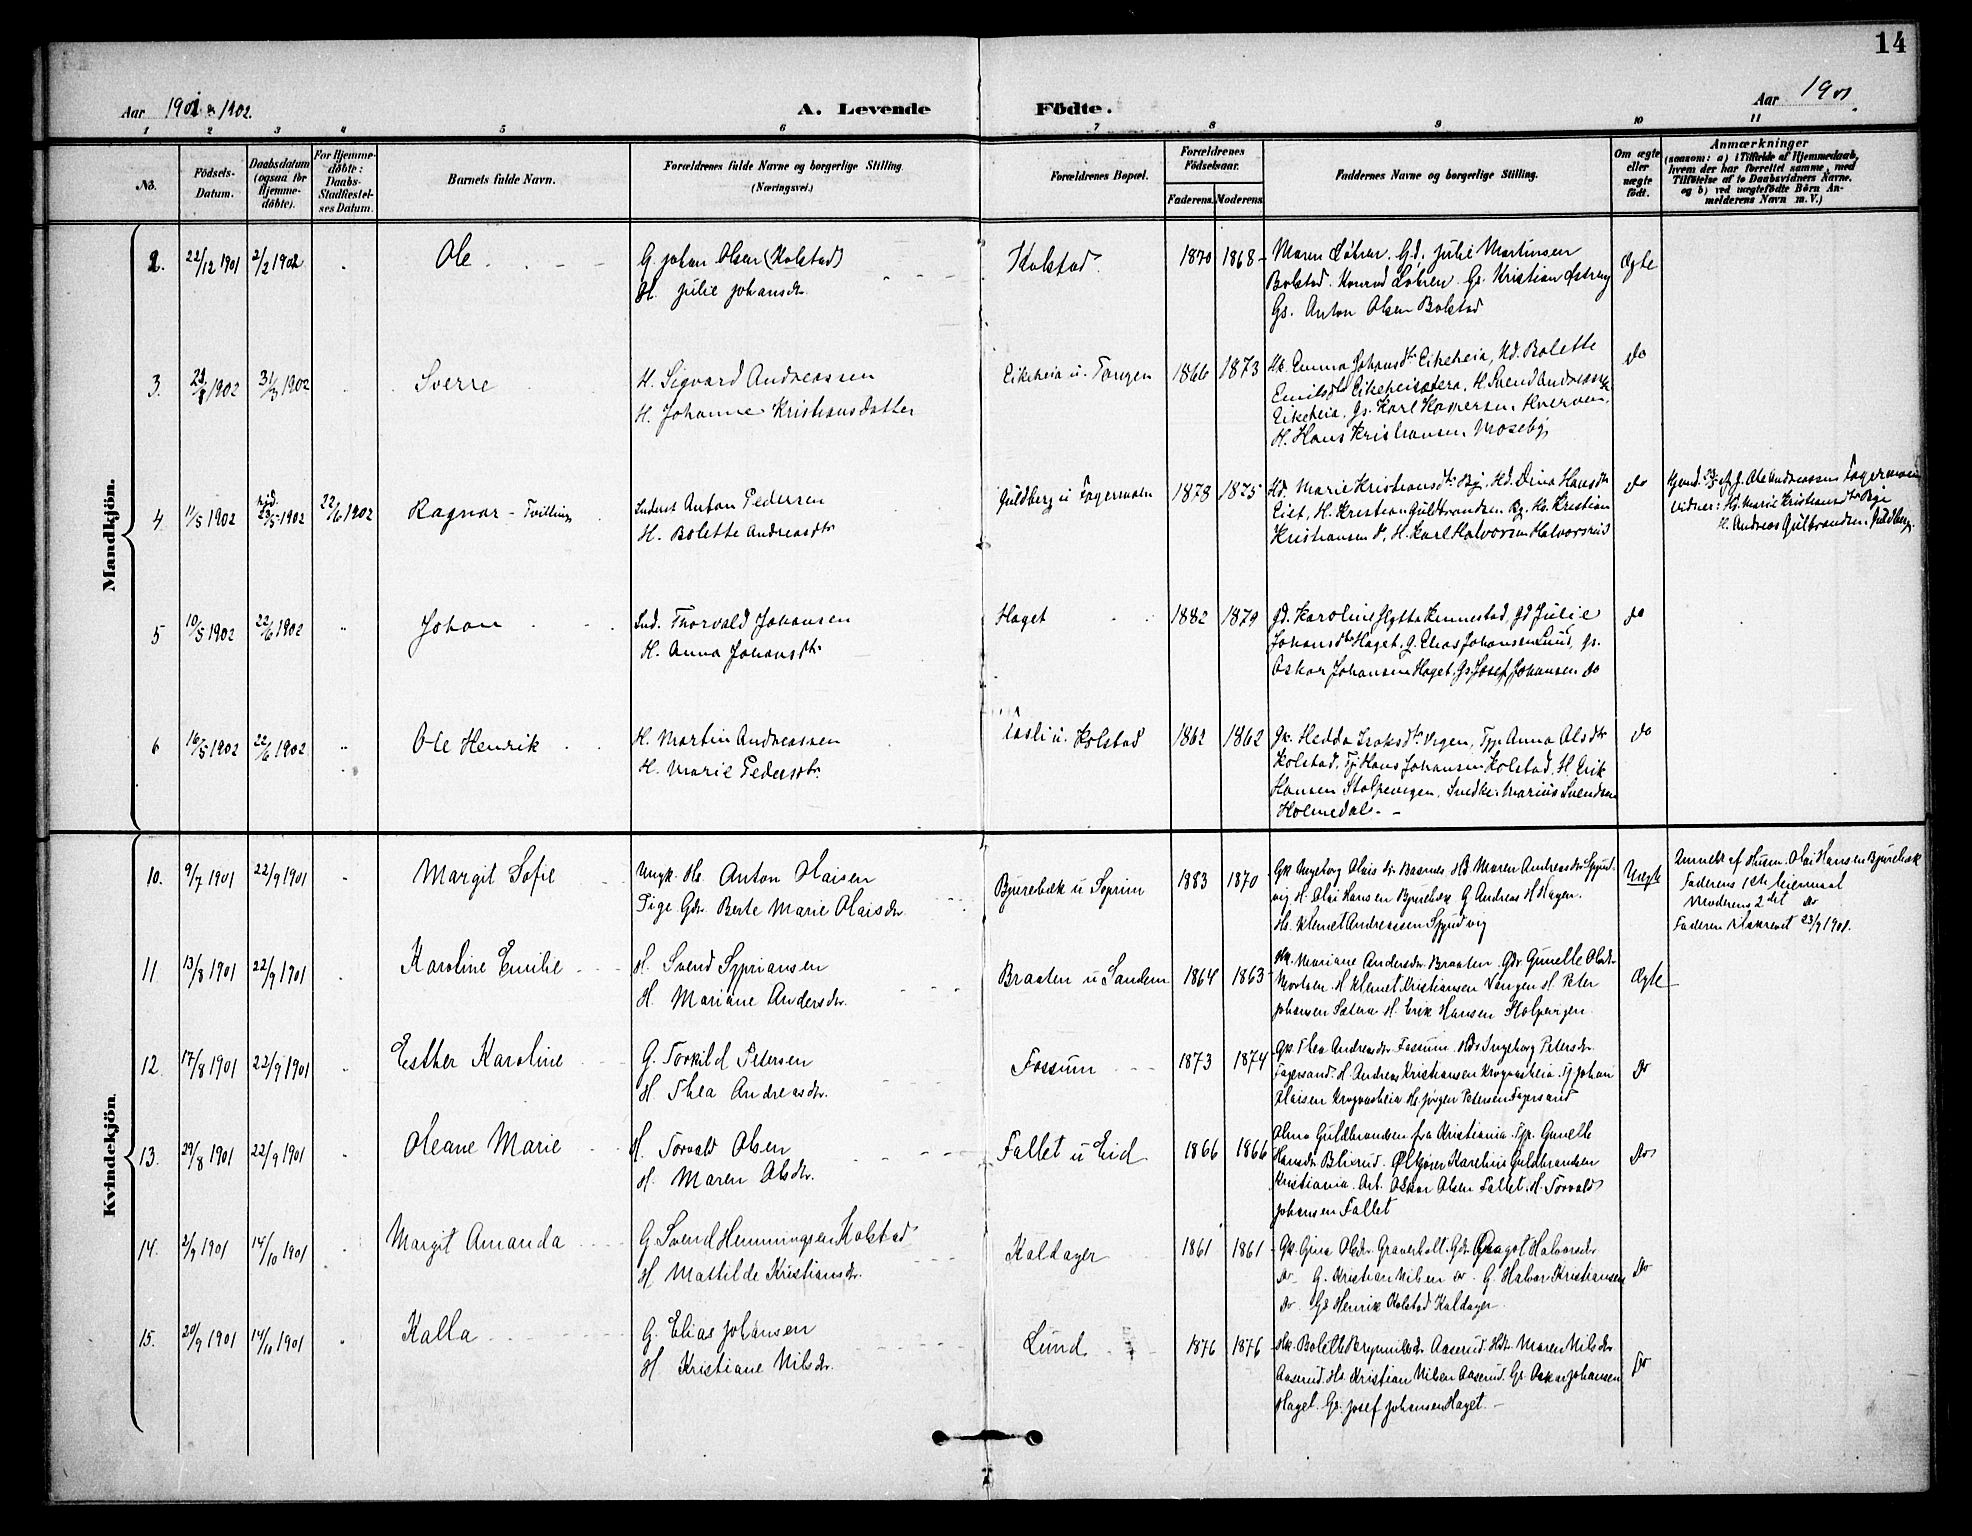 14
Aar 1901 & 1902.
A. Levende Födte.
Aar 1901.
1 2 3 4 5 6 7 8 9 10 11
No.
Födsels-Datum.
Daabsdatum (ogsaa for Hjemme-döbte).
For Hjemme-döbte: Daabs-Stadfæstel-ses Datum.
Barnets fulde Navn.
Forældrenes fulde Navne og borgerlige Stilling. (Næringsvei.)
Forældrenes Bopæl.
Forældrenes Födselsaar.
Faderens. Moderens.
Faddernes Navne og borgerlige Stilling.
Om ægte eller uægte födt.
Anmærkninger
(saasom: a) i Tilfælde af Hjemmedaab, hvem der har forrettet samme, med Tilföielse af to Daabsvidners Navne, og b) ved uægtefödte Börn An-melderens Navn m. V.)
Mandkjön.
2. 22/12 1901 2/2 1902 Ole
G. Johan Olsen (Kolstad)
H. Julie Johansdr.
Kolstad. 1870 1868
Maren Löbren. Gd. Julie Martinsen
Bolstad. Konrad Löbren. Gs. Kristian
Gs. Anton Olsen Bolstad
Ægte
3. 1902 31/3 1902 Sverre
H. Sigvard Andreassen
H. Johanne Kristiansdatter
Eikeheia u. Tangen 1866 1873
Hk. Emma Johansdtr Eikeheia, Kd. Bolette
Emilsdtr Eikeheisætera, H. Svend Andreassen
Eikeheia, Gs. Karl
H. Hans Kristiansen Moseby
do
4 11/5 1902 23/5 1902 22/6 1902 Ragnar - Tvilling
Anton Pedersen
H. Bolette Andreasdtr
Guldberg u Fagermoen 1878 1875
Hd. Marie Kristiansdtr By, Hd. Dina Hansdtr
Eiet, H. Kristian Gulbrandsen By, Hs. Kristian
Kristiansen d, H. Karl Halvorsen Halvorsrud
do
Ole Andreassen Fagermoen
Vidner: Hd. Marie Kristiansdtr Bye
H. Andreas Gulbrandsen Guldberg.
5 10/5 1902 22/6 1902 Johan
Ind. Thorvald Johansen
H. Anna Johansdtr
Haget 1882 1879
Gd. Karoline Hytta Kennestad, Gd Julie
Johansdtr Haget, G. Elias Johansen Lund, Gs.
Oskar Johansen Haget, Gs. Josef Johansen do
do
6 16/5 1902 22/6 1902 Ole Henrik
H. Martin Andreassen
H. Marie Pedersdtr.
u. Kolstad 1862 1862
Gk. Hedda Isaksdtr Vegen, Tjp. Anna Olsdtr
Kolstad, Tj Hans Johansen Kolstad, H. Erik
Hansen Stolpevegen, Snedker Marius Svendsen
Holmedal.
do
Kvindekjön.
10. 9/7 1901 22/9 1901 Margit Sofie
Ungk. Hs. Anton Olaisen
Pige Gdr. Berte Marie Olaisdr.
Bjurebæk u Soprim 1883 1870
Gk Ingeborg Olais dr. Basmes Hd Maren Andreasdr Spjud-
vig H Olai Hansen Bjurebæk G Andreas H Hagen.
Hs. Klemet Andreassen Spjudvig
Uægte
Anmeldt af Husm. Olai Hansen Bjurebæk
Faderens 1ste leiermaal
Moderens 2det do
Faderen tilskrevet 23/9 1901.
11. 13/8 1901 22/9 1901 Karoline Emilie
H. Svend Sypriansen
H. Mariane Andersdr.
Braaten u Sandem 1864 1863
Hk. Mariane Andersdr. Braaten. Gdr Gunelle Olsdr
H Klemet Kristiansen Vengen H. Peter
Johansen Sætera H. Erik Hansen Stolpevegen
Ægte
12. 17/8 1901 22/9 1901 Esther Karoline
G. Torkild Petersen
H Thea Andreasdr.
Fossum 1873 1874
Gk. Thea Andreasdr Fossum. Hdr Ingeborg Petersdr
Fagersand. H. Andreas Kristiansen Krogvasheia. Tj Johan
Olaisen Krogvasheia Hs. Jörgen Petersen Fagersand
do
13. 29/8 1901 22/9 1901 Oleane Marie
H. Torvald Olsen
H. Maren Olsdr.
Fallet u Eid 1866 1866
Olma Guldbrandsen fra Kristiania. Tjp. Gunelle
Hansdr Blixrud. Ölkjörer Karelius Guldbrandsen
Kristiania. Arb. Oskar Olsen Fallet. H. Torvald
Johansen Fallet
do
14. 2/9 1901 14/10 1901 Margit Amanda
G Svend Hemmingsen Kolstad
H Mathilde Kristiansdr.
Kaldager 1861 1861
Gk. Gina Olsdr. Graverholt. Gdr. Halvorsdr
do G. Kristian Nilsen do. G. Halvor Kristiansen
do Gs Henrik Kolstad Kaldager
do
15. 20/9 1901 14/10 1901 Kalla
G. Elias Johansen
H Kristiane Nilsdr.
Lund 1876 1876
Hk. Bolette Brynnilsdr. Aaserud. Hdr. Maren Nilsdr
Aaserud. Hs. Kristian Nilsen Aaserud. Gs. Oskar Johansen
Haget. Gs. Josef Johansen Haget.
do